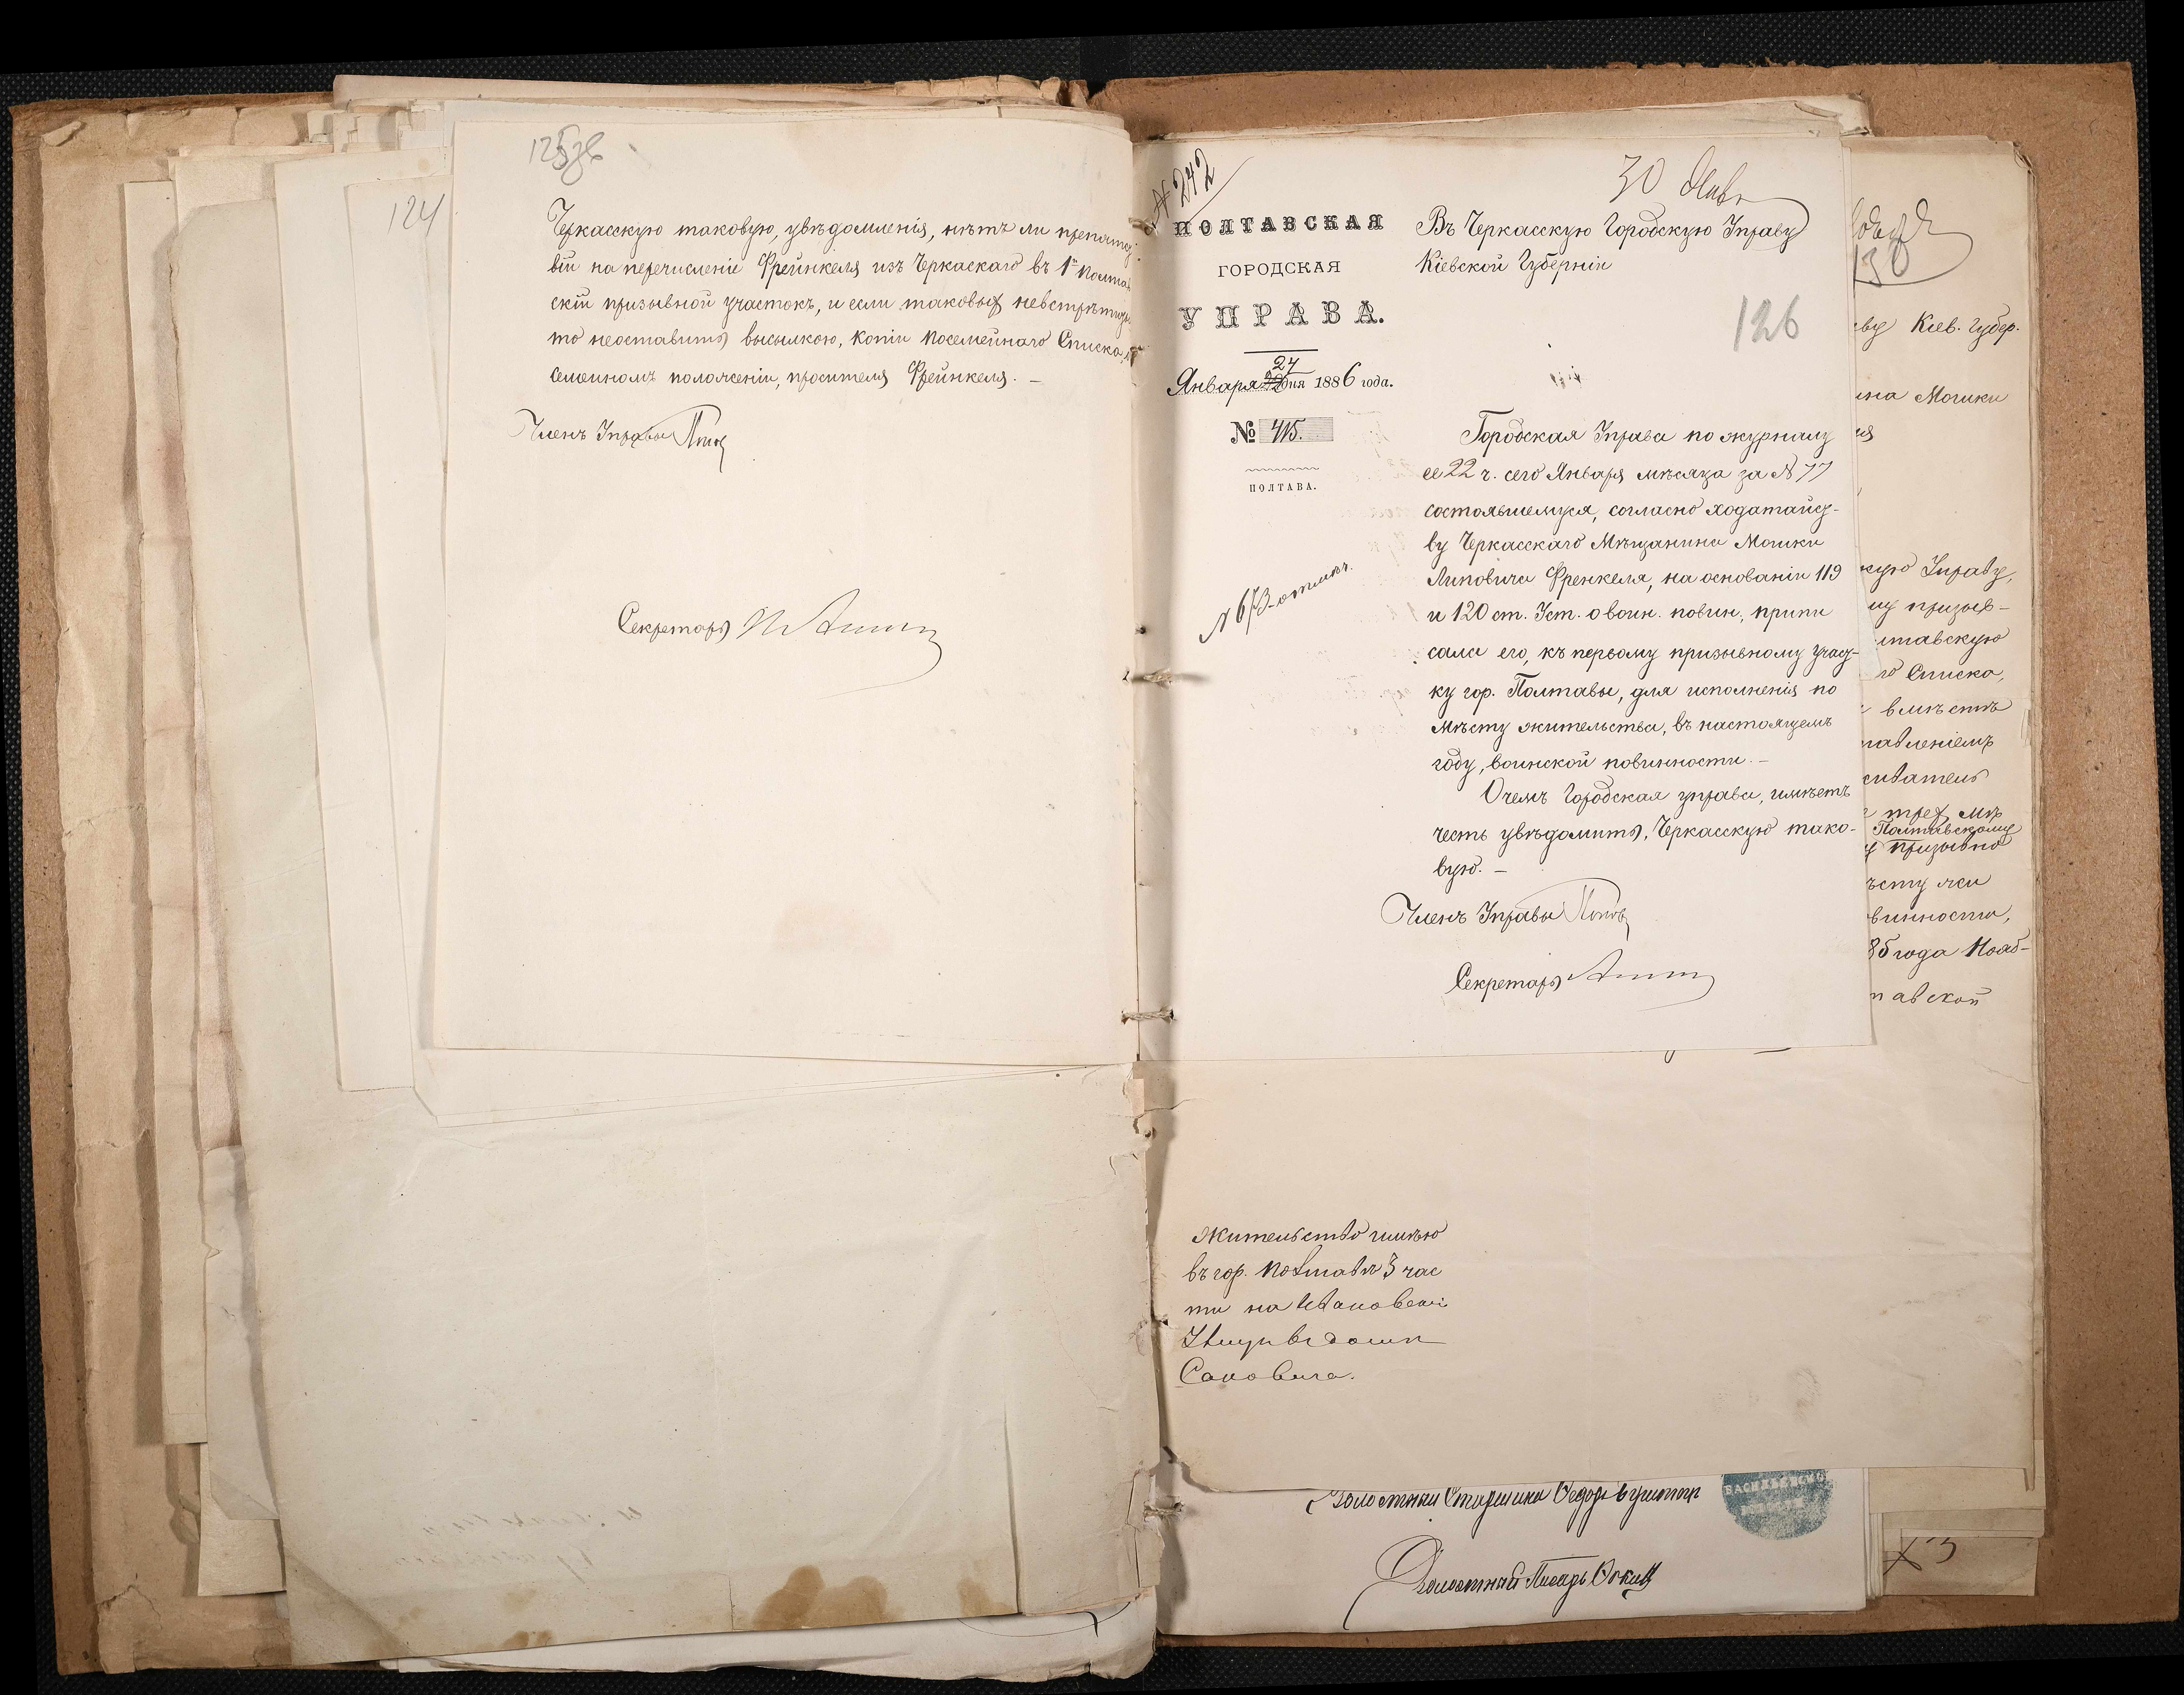 124
125
Черкасскую таковую, увѣдомленія, нѣтъ ли препятс-
вій на перечисленіе Фрейнкеля изъ Черкаскаго въ 1й Полтав
скій призывной участокъ, и если таковыхъ невстрѣтится
то неоставить высылкою, копіи посемейнаго Списка о
семейномъ положеніи, просителя Фрейнкеля. —
Членъ Управы
Секретарь
№ 242
ПОЛТАВСКАЯ
ГОРОДСКАЯ
УПРАВА.
27
Января дня 1886 года.
№ 415.
ПОЛТАВА.
30 Янв
Въ Черкасскую Городскую Управу
Кіевской Губерніи
126
Городская Управа по журналу
ее 22 ч. сего Января мѣсяца за № 77
состоявшемуся, согласно ходатайст-
ву Черкасскаго Мѣщанина Мошки
Липовича Френкеля, на основаніи 119
и 120 ст. Уст. о воин. повин., припи
сала его, къ первому призывному учас-
ку гор. Полтавы, для исполненія по
мѣсту жительства, въ настоящемъ
году, воинской повинности. —
Очемъ Городская управа, имѣетъ
честь увѣдомить, Черкасскую тако-
вую. —
Членъ Управы
Секретарь
130
Кіев. Губер.
ина Мошки
кую Управу,
му призыв-
лтавскую
го Списка,
вмѣстѣ
равленіемъ
трех мѣ
Полтавскому
призывно
ѣсту жи
винности,
85 года Нояб-
тавской
жительство имѣю
въ гор. Полтавѣ 3 час
ти на Ивановской
Улицѣ въ домѣ
Волостной Старшина
Волостной Писарь